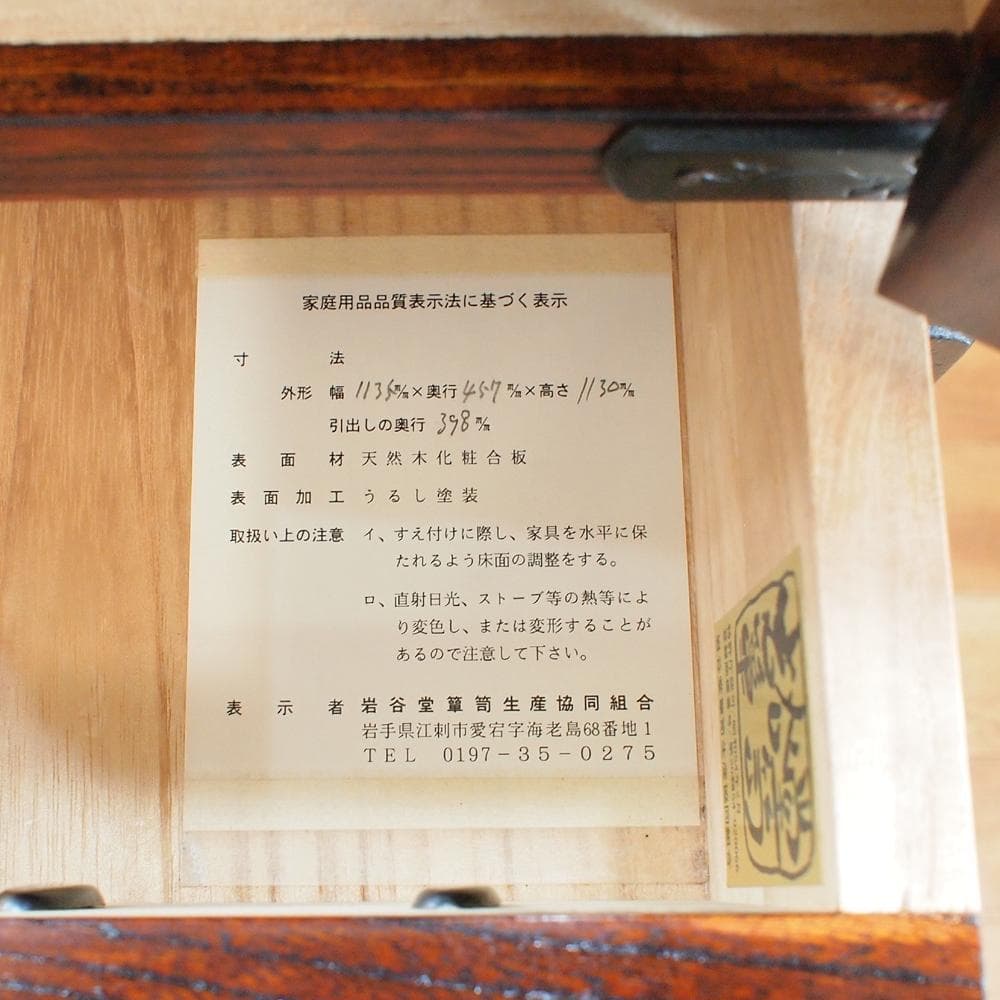 家庭用品品質表示法に基づく表示
寸法
外形 幅 1135m/m×奥行457m/m×高さ1130m/m
引出しの奥行 398m/m
表面材 天然木化粧合板
表面加工 うるし塗装
取扱い上の注意 イ、すえ付けに際し、家具を水平に保
たれるよう床面の調整をする。
ロ、直射日光、ストーブ等の熱等によ
り変色し、または変形することが
あるので注意して下さい。
表示者 岩谷堂簞笥生産協同組合
岩手県江刺市愛宕字海老島68番地1
TEL 0197-35-0275